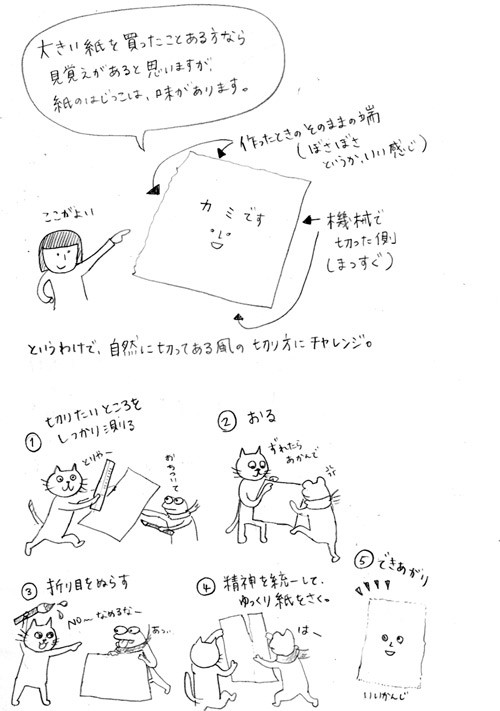 大きい紙を買ったことある方なら
見覚えがあると思いますが、
紙のはじっこは、味があります。
作ったときのそのままの端
(ぼさぼさ
というか、いい感じ)
ここがよい
カミです
機械で
切った側
(まっすぐ)
というわけで、自然に切ってある風の切り方にチャレンジ。
① 切りたいところを
しっかり測る
とりゃー
おちついて
② おる
ずれたら
あかんで
③ 折り目をぬらす
NO〜 なめるなー
あっ、
④ 精神を統一して、
ゆっくり紙をさく。
は、
⑤ できあがり
いいかんじ